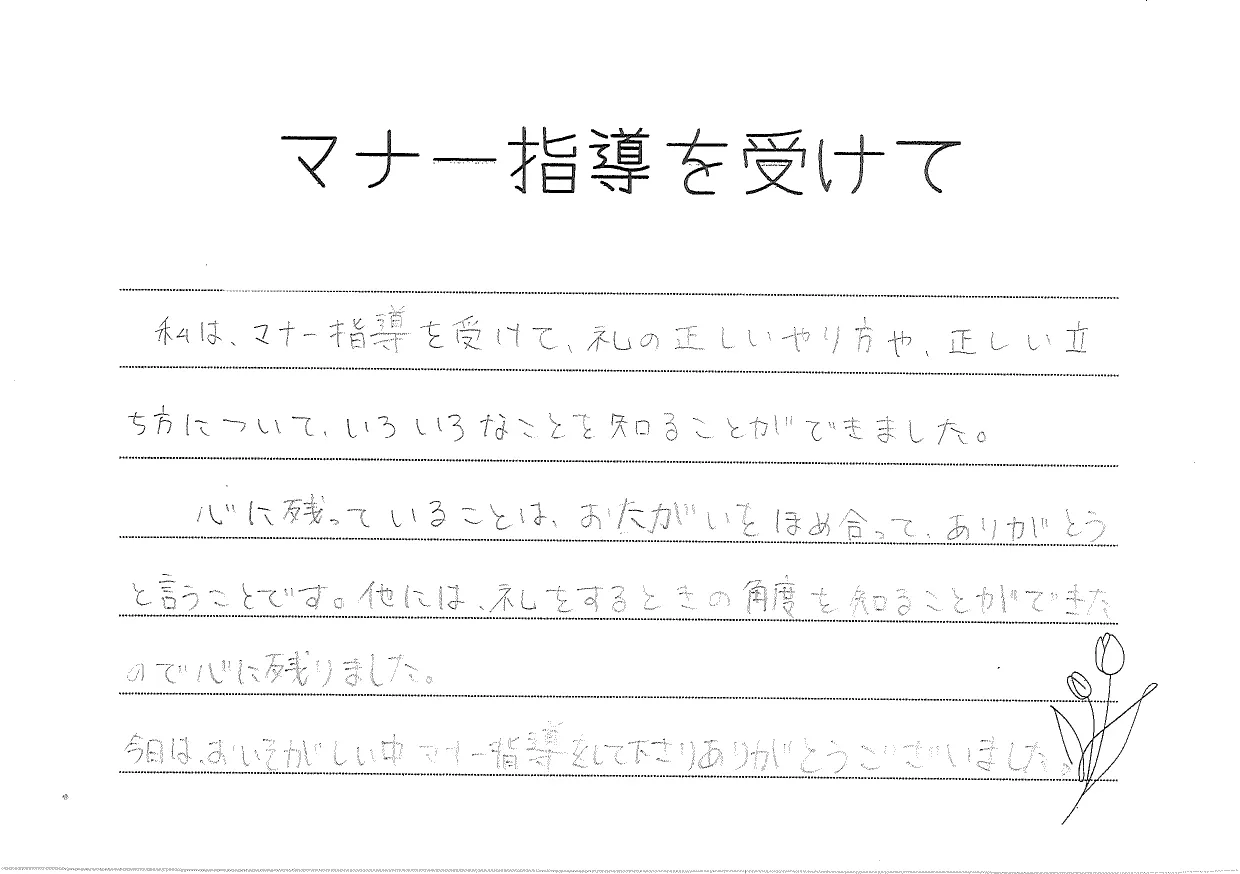 マナー指導を受けて
私は、マナー指導を受けて、礼の正しいやり方や、正しい立
ち方について、いろいろなことを知ることができました。
心に残っていることは、おたがいをほめ合って、ありがとう
と言うことです。他には、礼をするときの角度を知ることができた
ので心に残りました。
今日は、おいそがしい中マナー指導をして下さりありがとうございました。